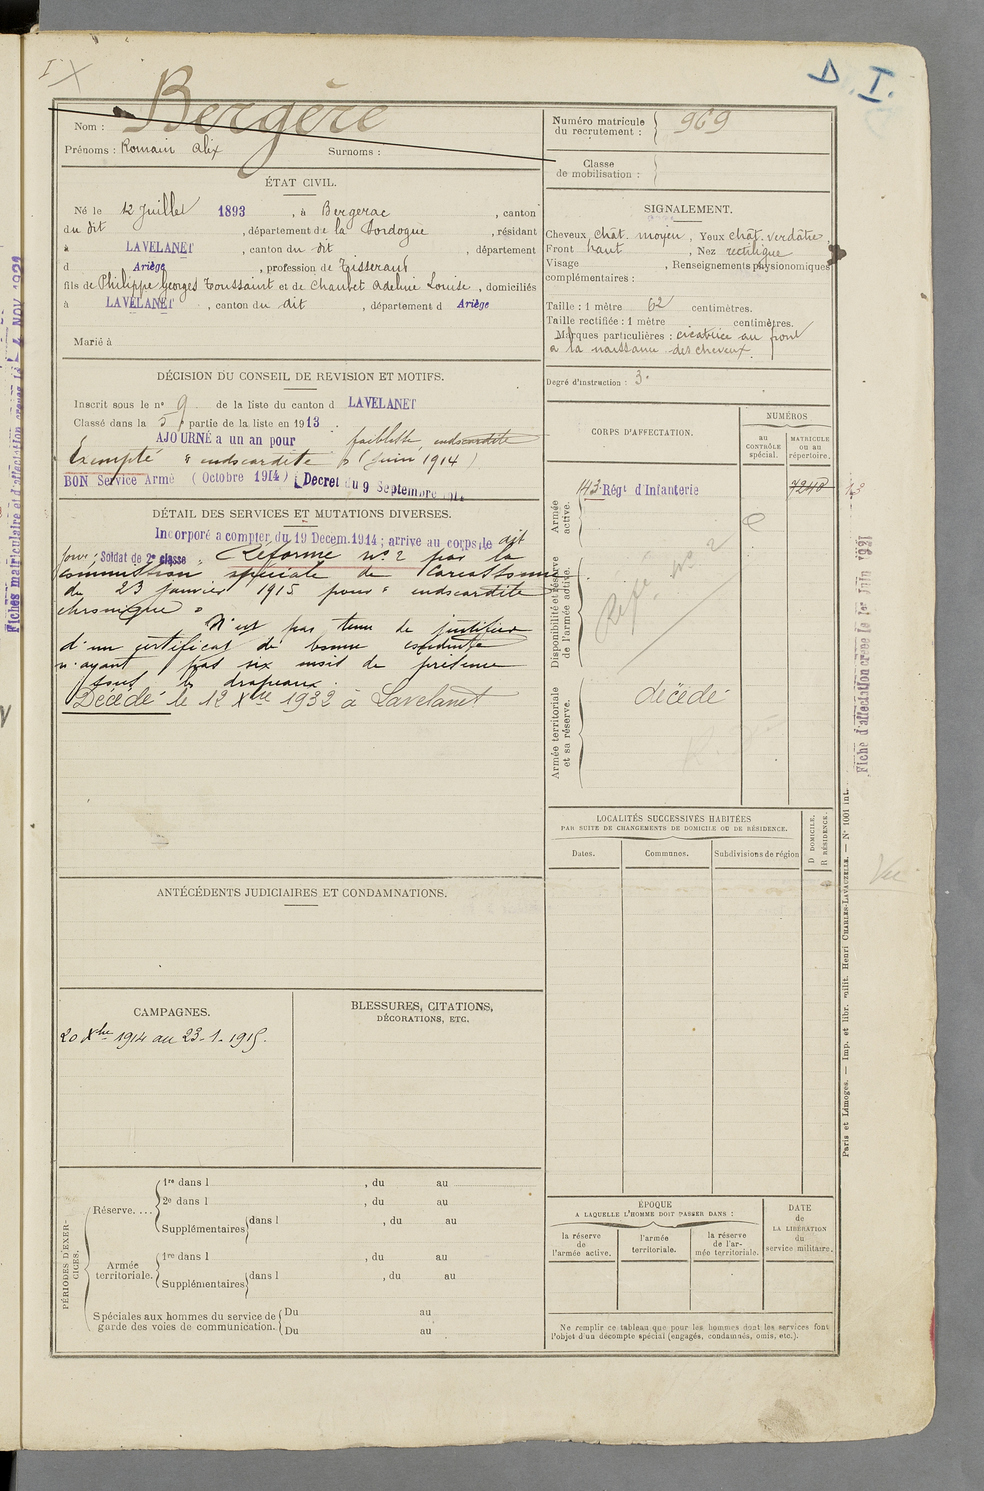 I X
D. I.
Nom : Bergère
Prénoms : Romain Alix Surnoms :
Numéro matricule du recrutement : 969
Classe de mobilisation :
ÉTAT CIVIL.
Né le 12 Juillet 1893, à Bergerac, canton
du dit, département de la Dordogne, résidant
à LAVELANET, canton du dit, département
d Ariège, profession de Tisserand
fils de Philippe Georges Toussaint et de Chaubet Adeline Louise, domiciliés
à LAVELANET, canton du dit, département d Ariège
Marié à
SIGNALEMENT.
Cheveux chât. moyen, Yeux chât. verdâtre
Front haut, Nez rectiligne
Visage , Renseignements physionomiques
complémentaires :
Taille : 1 mètre 62 centimètres.
Taille rectifiée : 1 mètre centimètres.
Marques particulières : cicatrice au front
à la naissance des cheveux.
Degré d'instruction : 3.
DÉCISION DU CONSEIL DE REVISION ET MOTIFS.
Inscrit sous le n° 9 de la liste du canton d LAVELANET
Classé dans la 5e partie de la liste en 1913.
AJOURNÉ a un an pour faiblesse endocardite
Exempté " endocardite " (Juin 1914)
BON Service Armé (Octobre 1914) Decret du 9 Septembre 1914
DÉTAIL DES SERVICES ET MUTATIONS DIVERSES.
Incorporé a compter du 19 Decem. 1914 ; arrive au corps le dit
jour ; Soldat de 2e classe. Réformé n° 2 par la
commission spéciale de Carcassonne
du 23 janvier 1915 pour " endocardite
chronique "
N'est pas tenu de justifier
d'un certificat de bonne conduite
n'ayant pas six mois de présence
sous les drapeaux.
Décédé le 12 Xbre 1932 à Lavelanet
CORPS D'AFFECTATION.
NUMÉROS
au CONTRÔLE spécial.
MATRICULE ou au répertoire.
Armée active.
143e Régt d'Infanterie
7240
Disponibilité et réserve de l'armée active.
Réf. n° 2
Armée territoriale et sa réserve.
décédé
LOCALITÉS SUCCESSIVES HABITÉES
PAR SUITE DE CHANGEMENTS DE DOMICILE OU DE RÉSIDENCE.
Dates.
Communes.
Subdivisions de région
D DOMICILE.
R RÉSIDENCE.
ANTÉCÉDENTS JUDICIAIRES ET CONDAMNATIONS.
CAMPAGNES.
20 Xbre 1914 au 23-1-1915.
BLESSURES, CITATIONS,
DÉCORATIONS, ETC.
PÉRIODES D'EXERCICES.
Réserve. ...
1re dans l , du au
2e dans l , du au
Supplémentaires dans l , du au
Armée territoriale.
1re dans l , du au
Supplémentaires dans l , du au
Spéciales aux hommes du service de
garde des voies de communication.
Du au
Du au
ÉPOQUE
A LAQUELLE L'HOMME DOIT PASSER DANS :
la réserve de l'armée active.
l'armée territoriale.
la réserve de l'armée territoriale.
DATE de LA LIBÉRATION du service militaire.
Ne remplir ce tableau que pour les hommes dont les services font
l'objet d'un décompte spécial (engagés, condamnés, omis, etc.).
Fiches matriculaire et d'affectation creees le - 4 NOV 1921
Fiche d'affectation creee le 1er Juin 1921
Vu
Paris et Limoges. — Imp. et libr. milit. Henri CHARLES-LAVAUZELLE. — N° 1001 int.